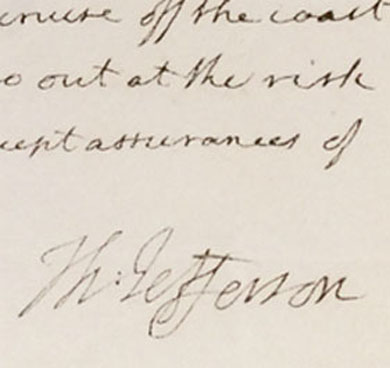 cruise off the coast
o out at the risk
cept assurances of
Th: Jefferson